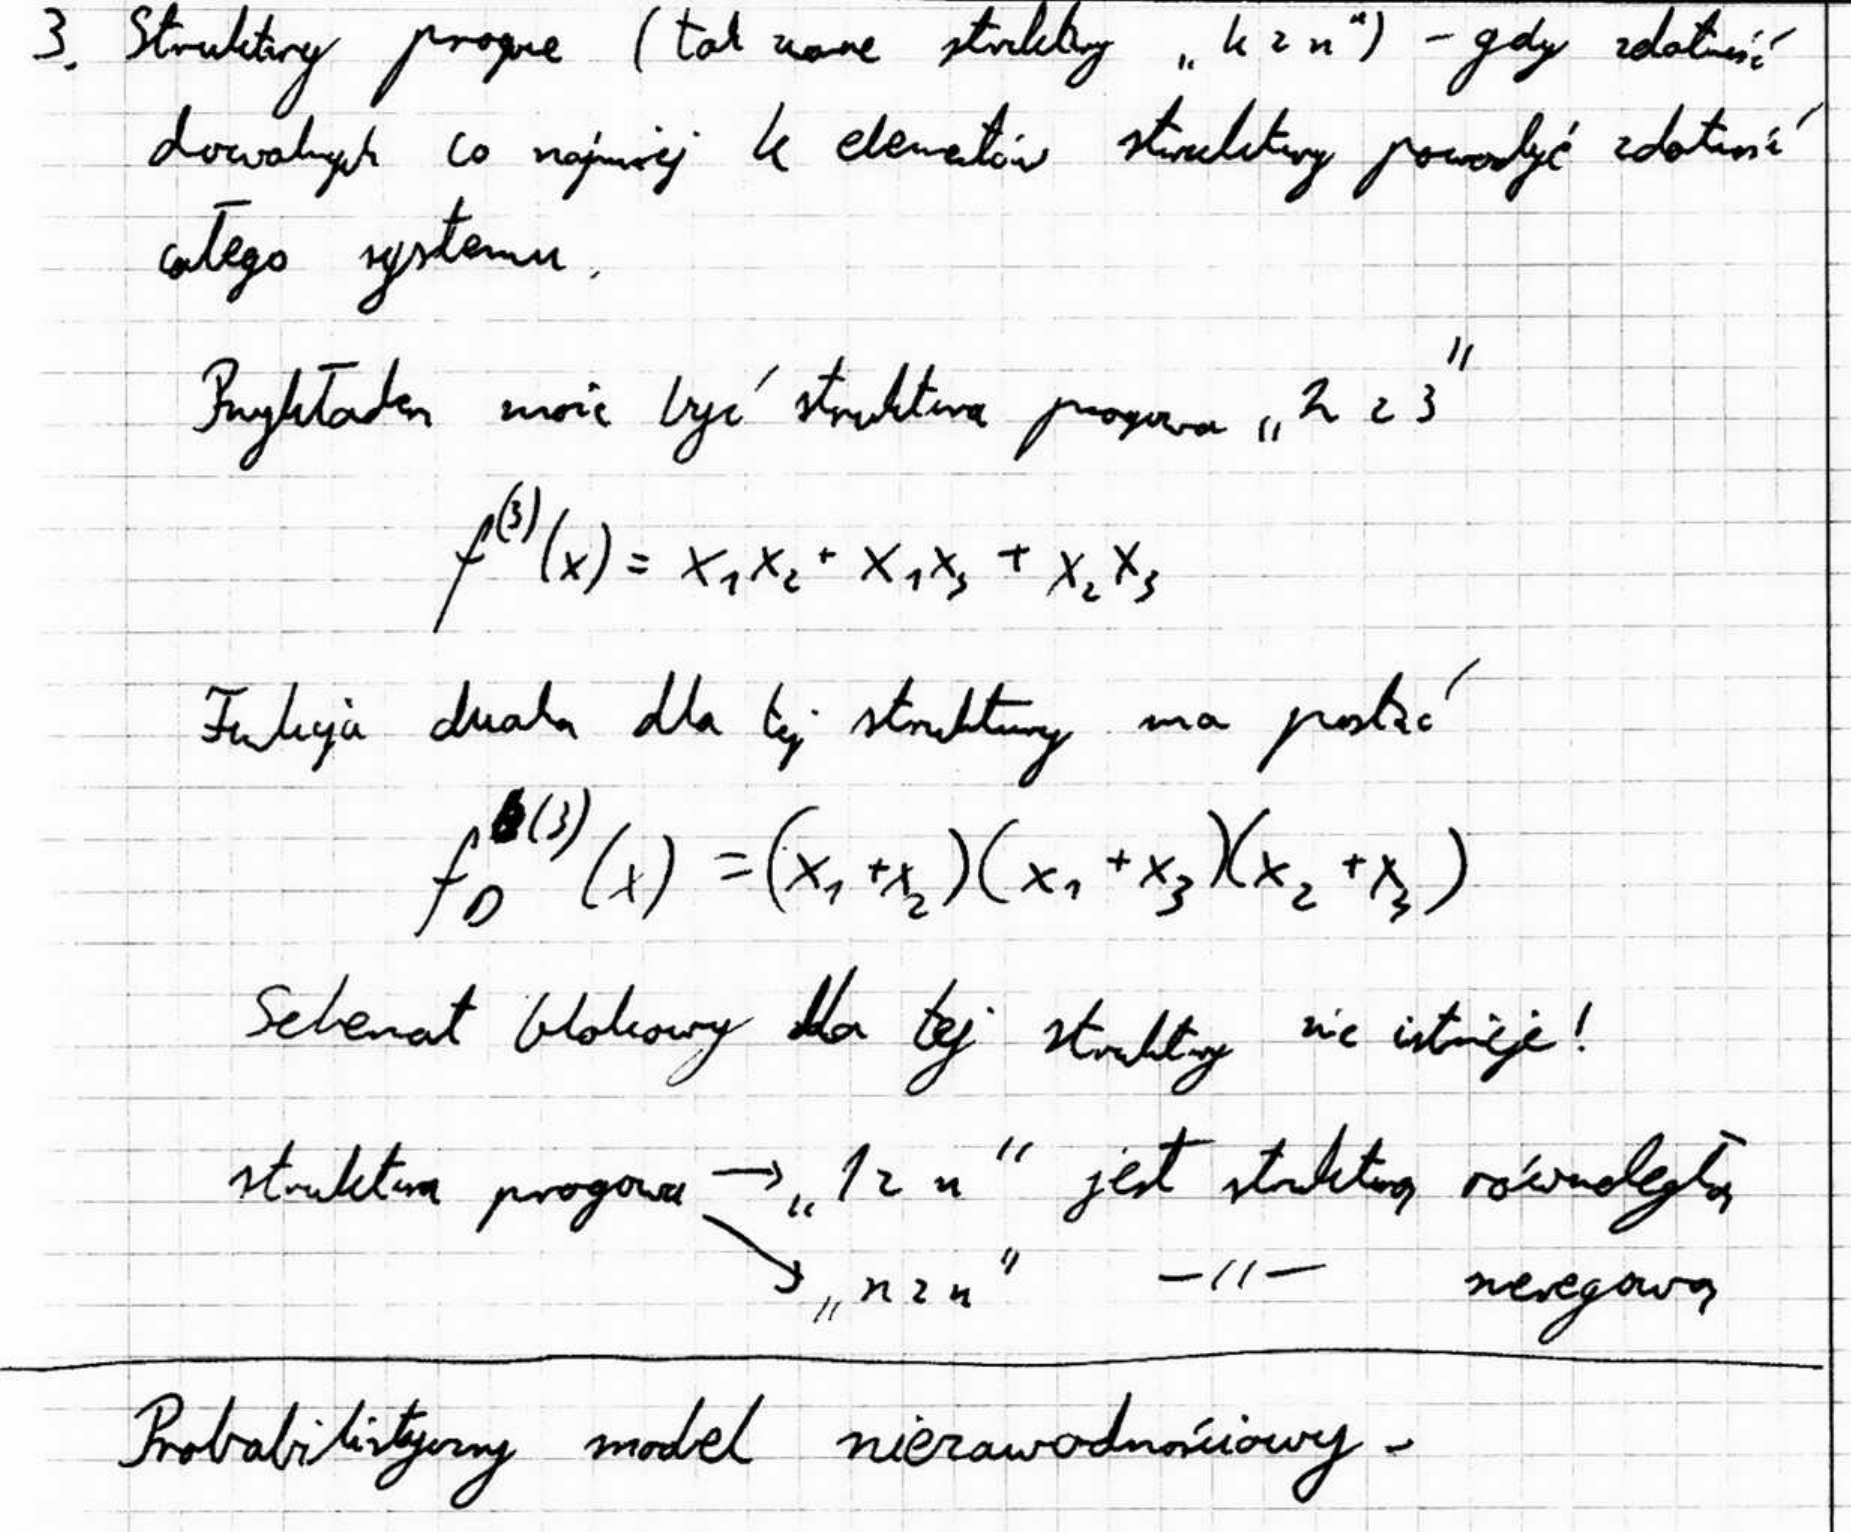 3. Struktury progowe (tak zwane struktury „k z n") - gdy zdatność
dowolnych co najmniej k elementów struktury powoduje zdatność
całego systemu.
Przykładem może być struktura progowa „2 z 3"
f⁽³⁾(x) = x₁x₂ + x₁x₃ + x₂x₃
Funkcja dualna dla tej struktury ma postać
f_D⁽³⁾(x) = (x₁+x₂)(x₁+x₃)(x₂+x₃)
Schemat blokowy dla tej struktury nie istnieje!
struktura progowa → „1 z n" jest strukturą równoległą
↘ „n z n" -〃- szeregową
Probabilistyczny model niezawodnościowy -